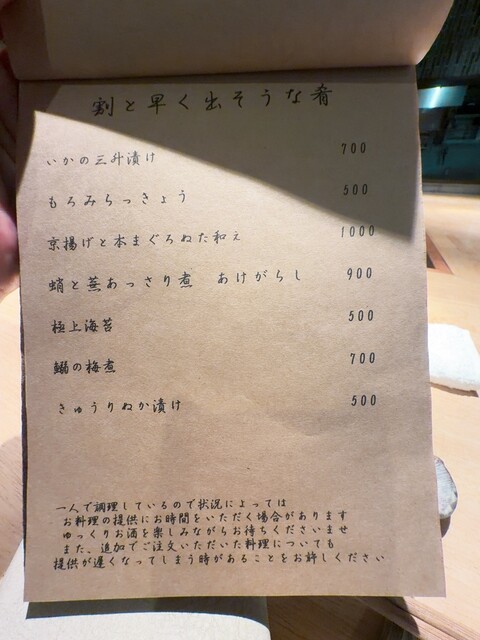 割と早く出そうな肴
いかの三升漬け 700
もろみらっきょう 500
京揚げと本まぐろぬた和え 1000
蛸と蕪あっさり煮 あけがらし 900
極上海苔 500
鰯の梅煮 700
きゅうりぬか漬け 500
一人で調理しているので状況によっては
お料理の提供にお時間をいただく場合があります
ゆっくりお酒を楽しみながらお待ちくださいませ
また、追加でご注文いただいた料理についても
提供が遅くなってしまう時があることをお許しください